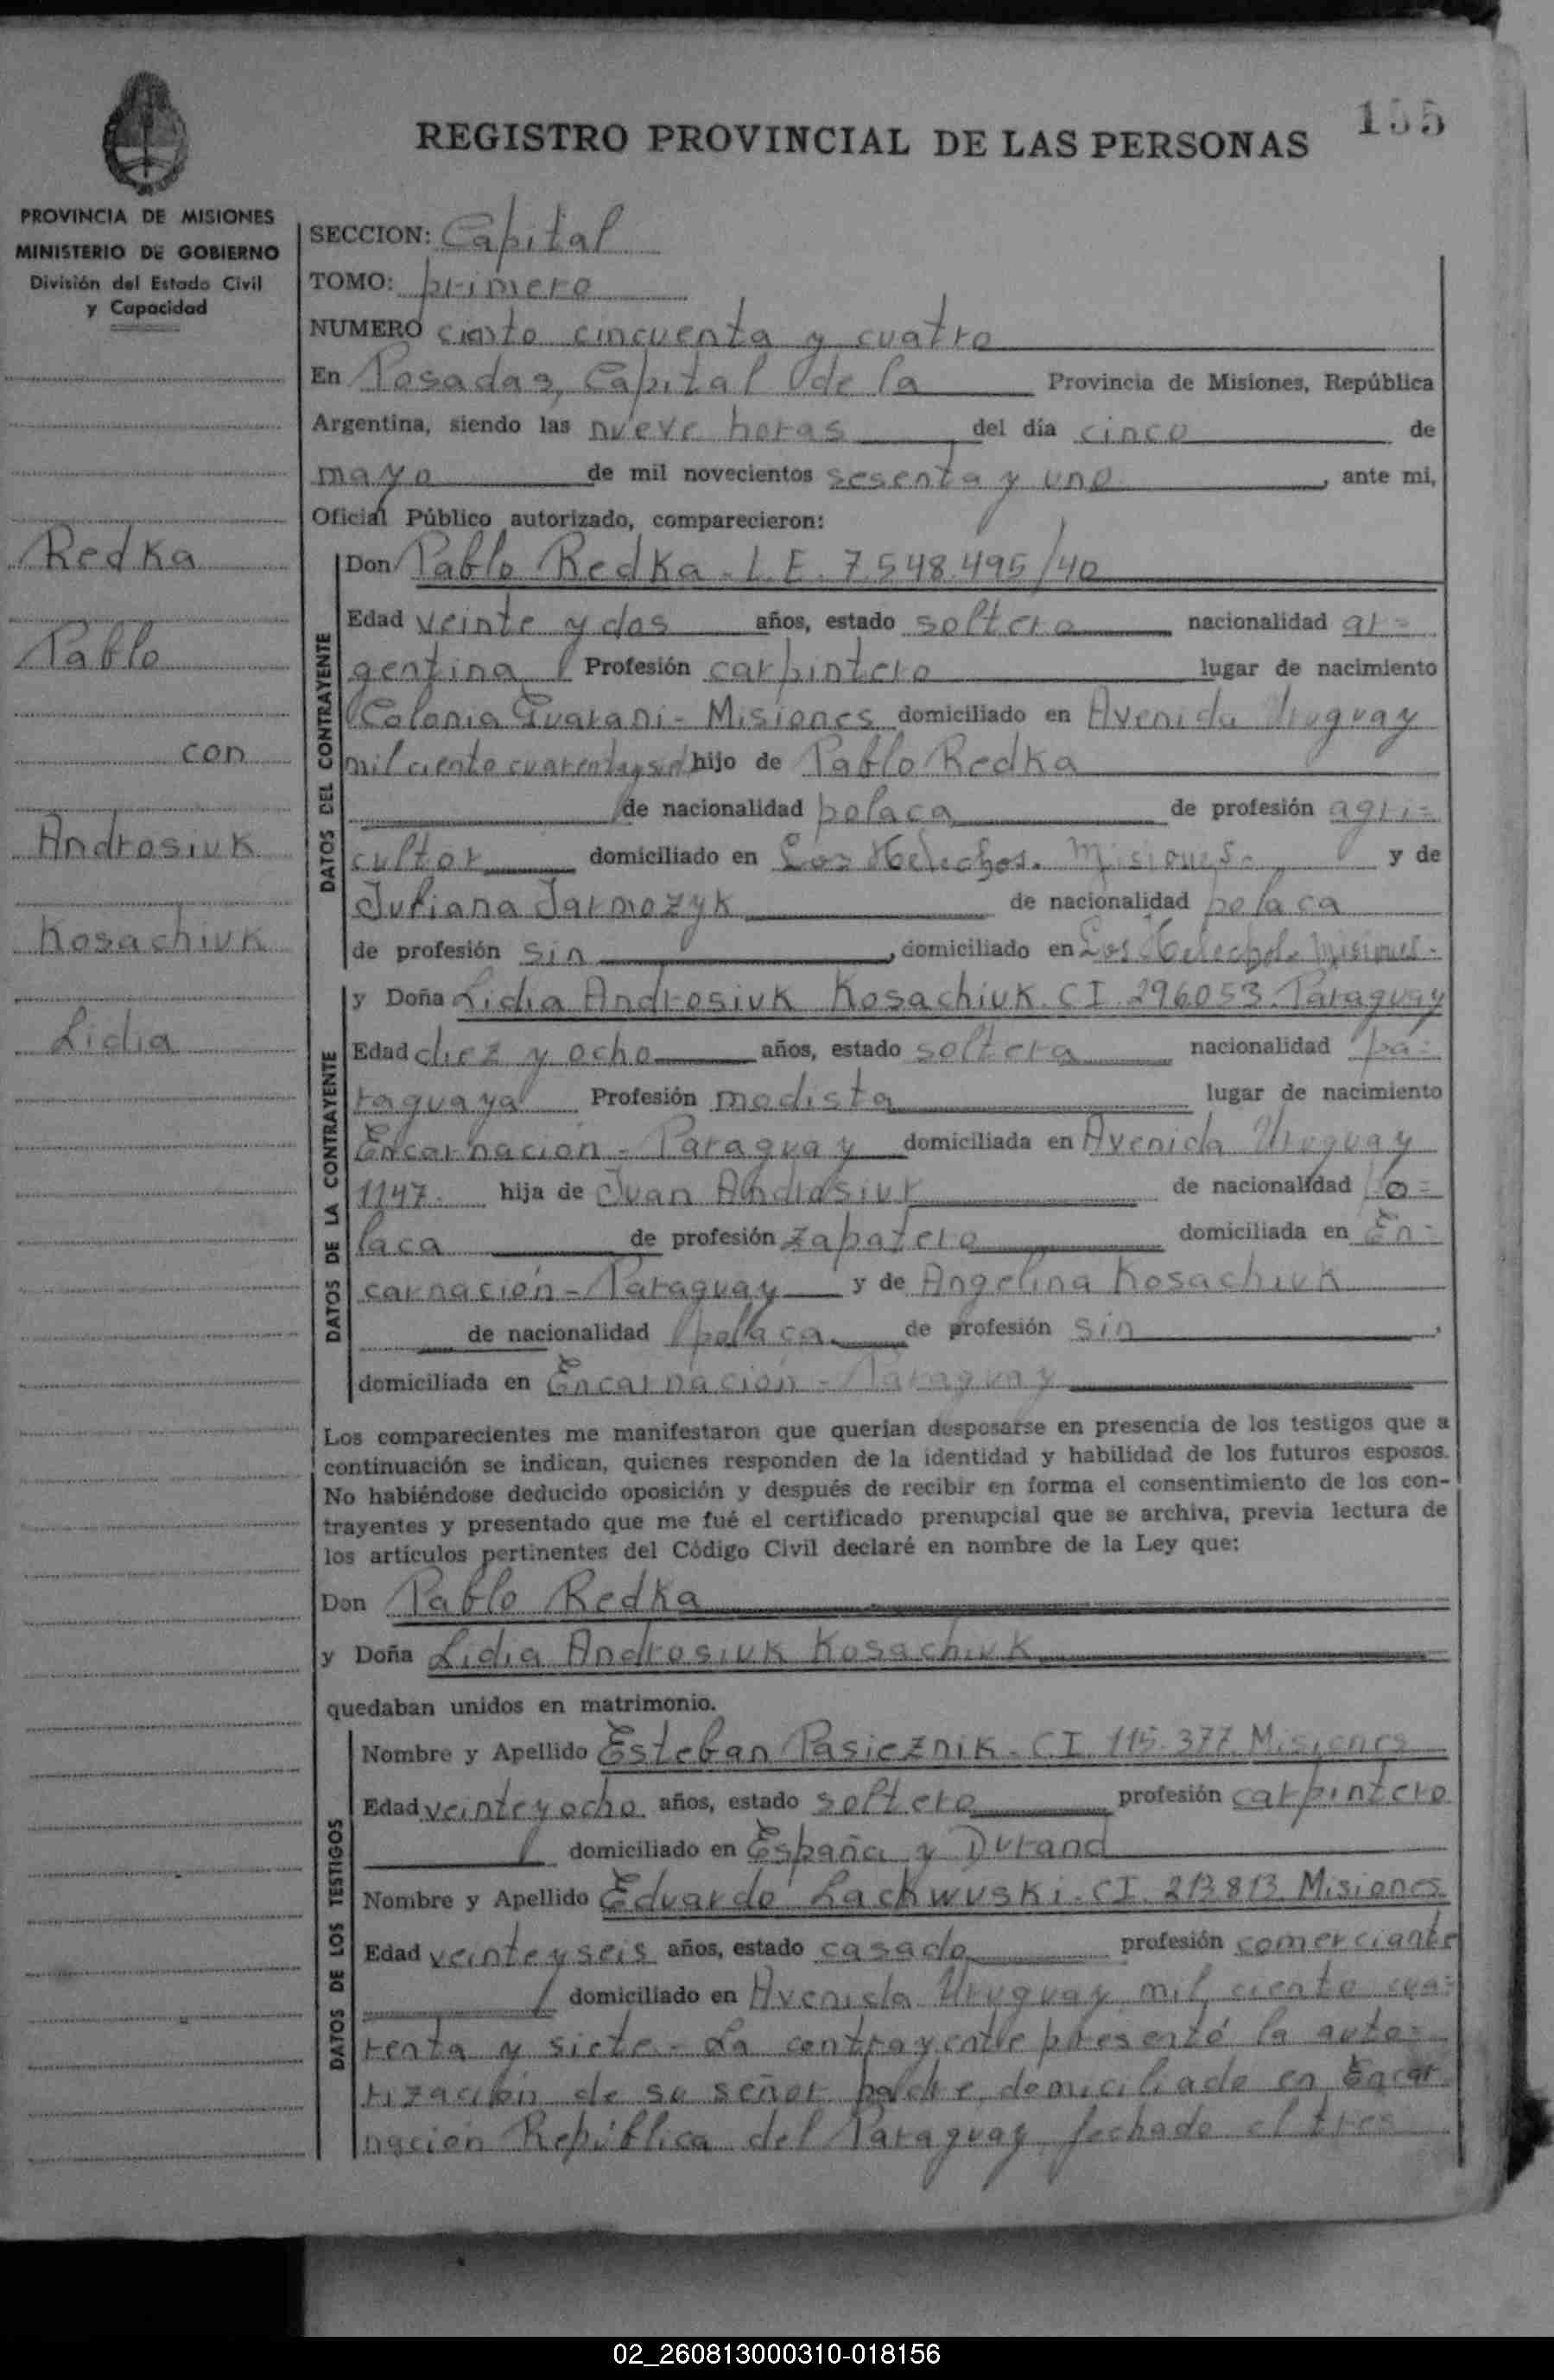 155
REGISTRO PROVINCIAL DE LAS PERSONAS
PROVINCIA DE MISIONES
MINISTERIO DE GOBIERNO
División del Estado Civil
y Capacidad
Redka
Pablo
con
Androsiuk
Kosachiuk
Lidia
SECCION: Capital
TOMO: primero
NUMERO ciento cincuenta y cuatro
En Posadas, Capital de la Provincia de Misiones, República
Argentina, siendo las nueve horas del día cinco de
mayo de mil novecientos sesenta y uno, ante mi,
Oficial Público autorizado, comparecieron:
DATOS DEL CONTRAYENTE
Don Pablo Redka. L.E. 7.548.495/40
Edad veinte y dos años, estado soltero nacionalidad ar=
gentina Profesión carpintero lugar de nacimiento
Colonia Guarani - Misiones domiciliado en Avenida Uruguay
mil ciento hijo de Pablo Redka
de nacionalidad polaca de profesión agri=
cultor domiciliado en Los Helechos. Misiones. y de
Juliana Jarmozyk de nacionalidad polaca
de profesión sin, domiciliado en Los Helechos. Misiones.
DATOS DE LA CONTRAYENTE
y Doña Lidia Androsiuk Kosachiuk. CI. 296053. Paraguay
Edad diez y ocho años, estado soltera nacionalidad pa=
raguaya Profesión modista lugar de nacimiento
Encarnación - Paraguay domiciliada en Avenida Uruguay
1147. hija de Juan Androsiuk de nacionalidad po=
laca de profesión zapatero domiciliada en En=
carnación - Paraguay y de Angelina Kosachiuk
de nacionalidad polaca. de profesión sin,
domiciliada en Encarnación - Paraguay
Los comparecientes me manifestaron que querían desposarse en presencia de los testigos que a
continuación se indican, quienes responden de la identidad y habilidad de los futuros esposos.
No habiéndose deducido oposición y después de recibir en forma el consentimiento de los con-
trayentes y presentado que me fué el certificado prenupcial que se archiva, previa lectura de
los artículos pertinentes del Código Civil declaré en nombre de la Ley que:
Don Pablo Redka
y Doña Lidia Androsiuk Kosachiuk
quedaban unidos en matrimonio.
DATOS DE LOS TESTIGOS
Nombre y Apellido Esteban Pasieznik. CI. 115.377. Misiones
Edad veinte y ocho años, estado soltero profesión carpintero
domiciliado en España y Durand
Nombre y Apellido Eduardo Lachwuski. CI. 213813. Misiones
Edad veinte y seis años, estado casado profesión comerciante
domiciliado en Avenida Uruguay mil ciento cua=
renta y siete. - La contrayente presentó la auto=
rización de su señor padre, domiciliado en Encar
nación República del Paraguay fechado el tres
02_260813000310-018156